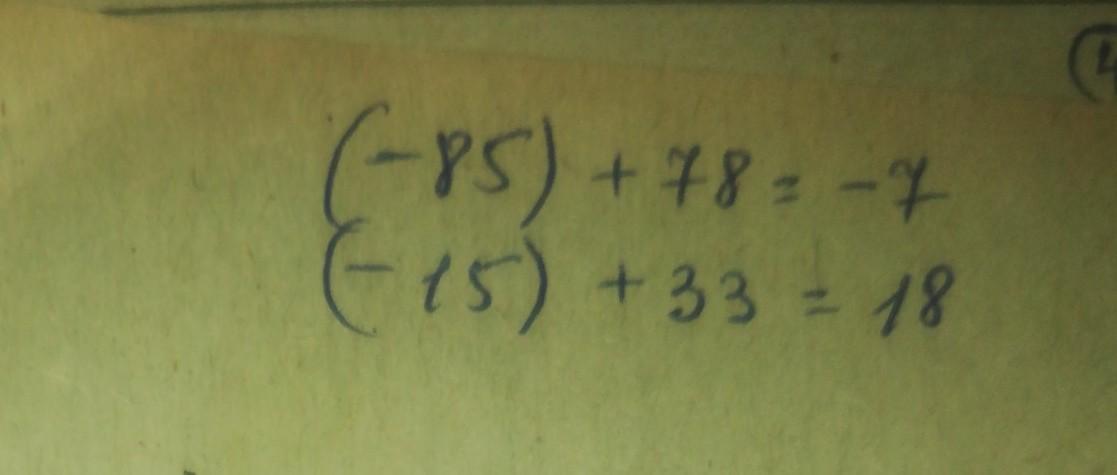 (-85) + 78 = -7
(-15) + 33 = 18